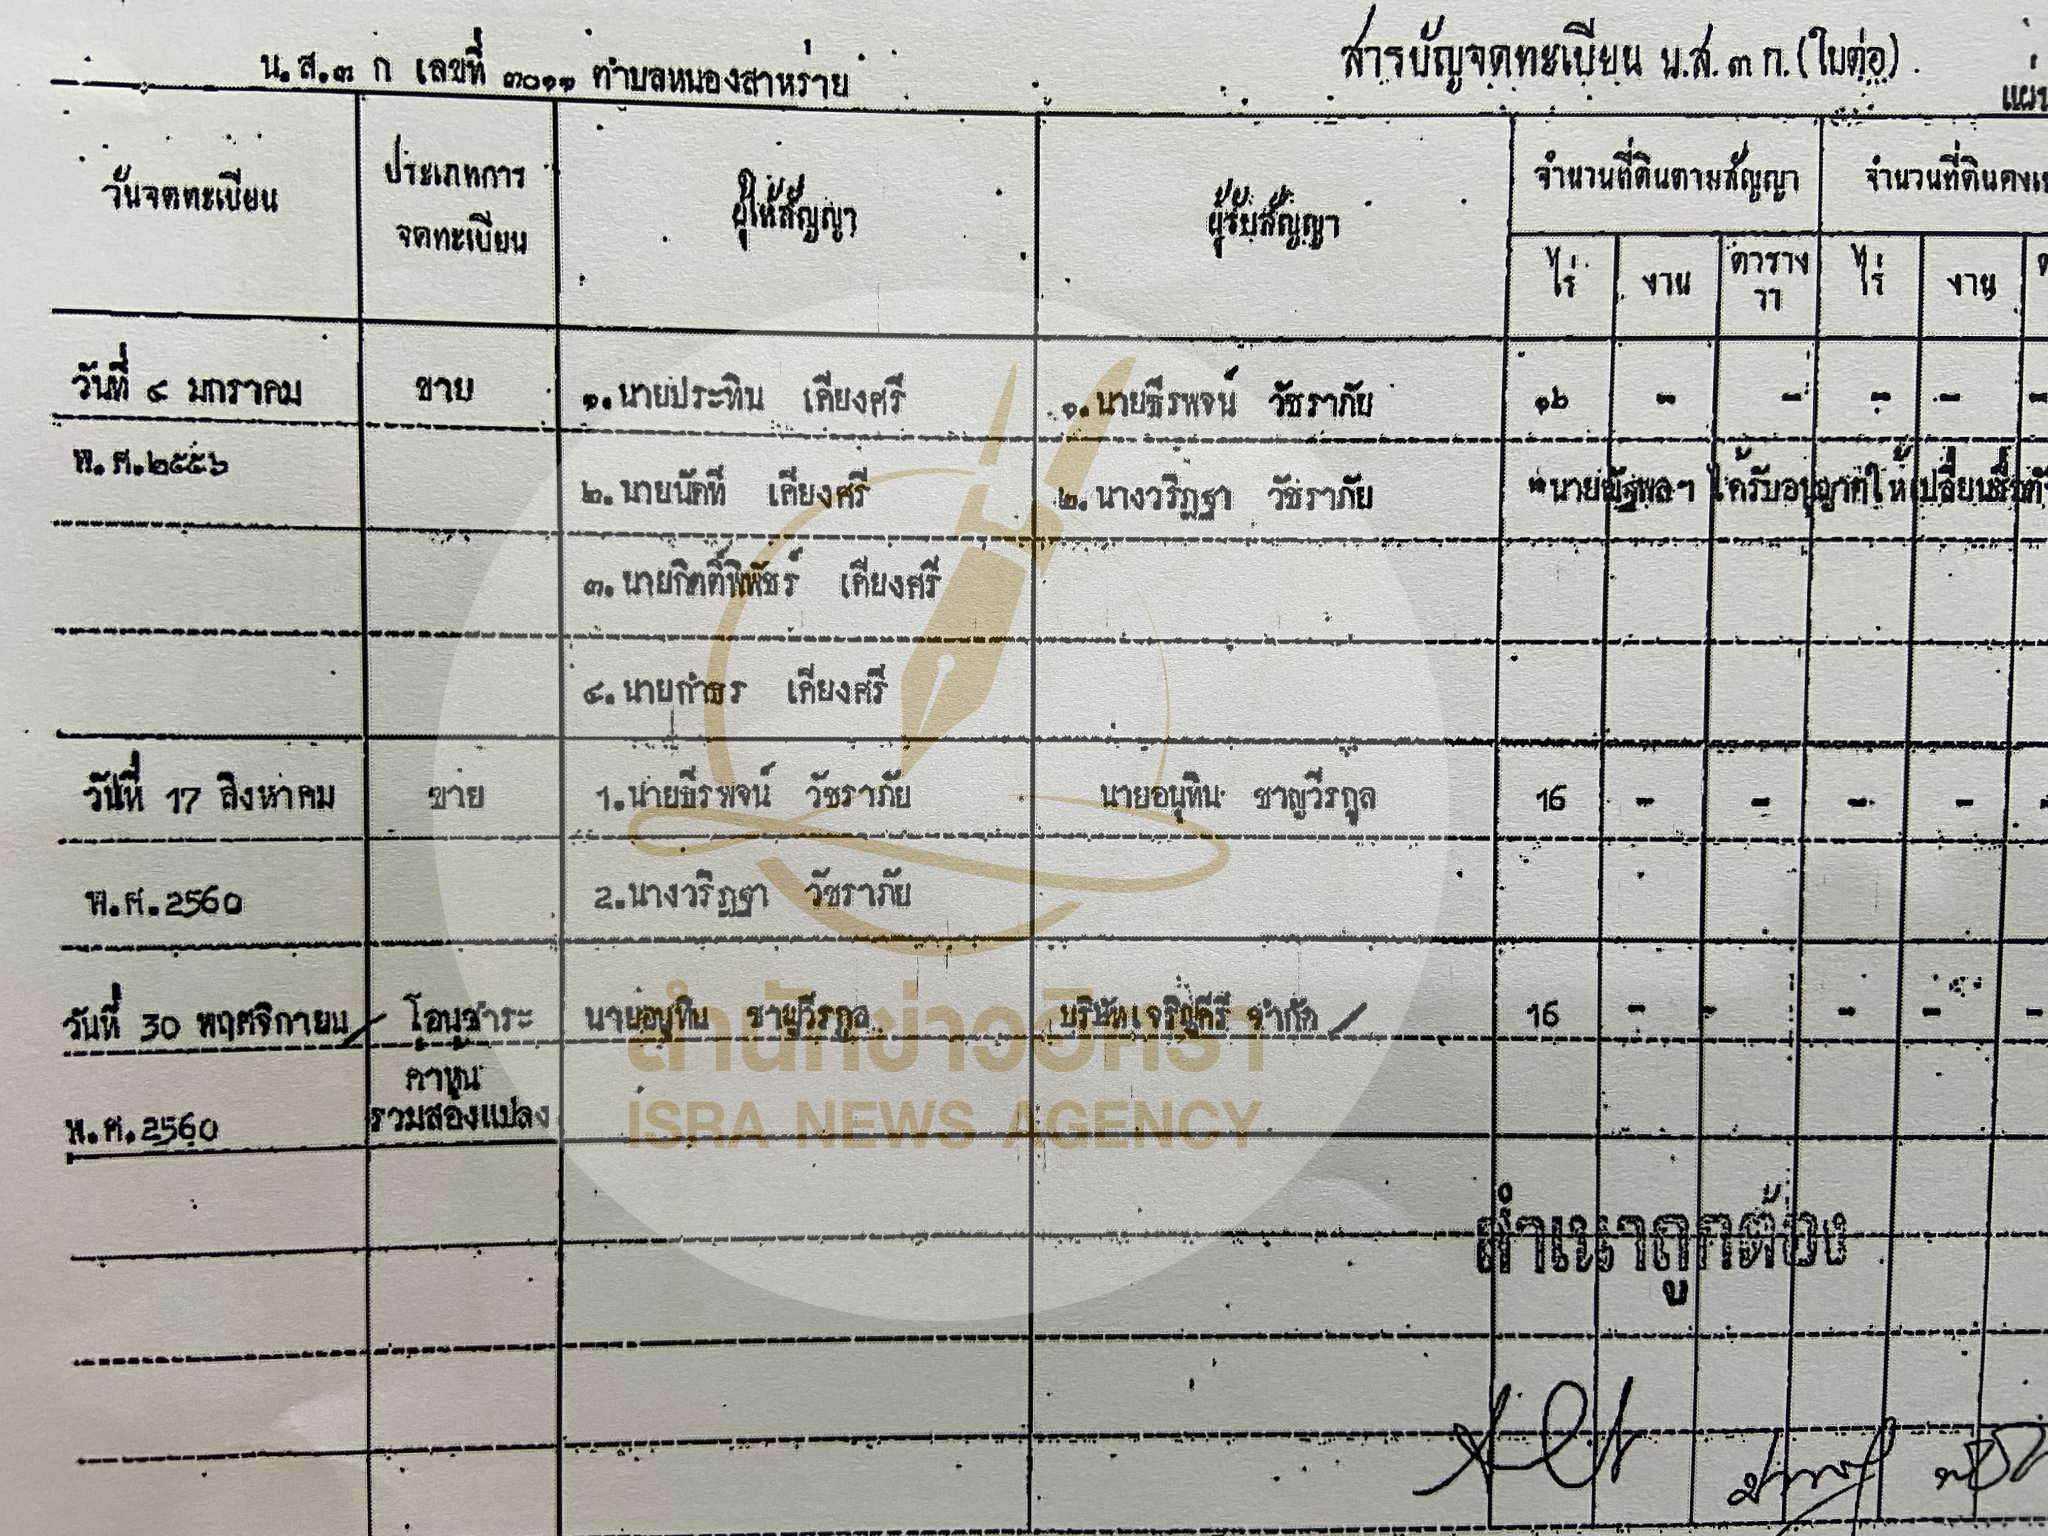 น.ส.๓ ก เลขที่ ๓๐๑๑ ตำบลหนองสาหร่าย
สารบัญจดทะเบียน น.ส.๓ก.(ใบต่อ)
วันจดทะเบียน ประเภทการ ผู้ให้สัญญา ผู้รับสัญญา จำนวนที่ดินตามสัญญา จำนวนที่ดินคงเ
จดทะเบียน
ไร่ งาน ตาราง ไร่ งาน
วา
วันที่ ๔ มกราคม ขาย ๑.นายประทิน เคียงศรี ๑.นายธีรพจน์ วัชราภัย ๑๖ - - - - -
พ.ศ.๒๕๕๖ ๒.นายนัคที เคียงศรี ๒.นางวริฏฐา วัชราภัย นายณัฐพลฯ ได้รับอนุญาตให้เปลี่ยนชื่อตัว
๓.นายกิตติ์พิพัชร์ เคียงศรี
๔.นายกำธร เคียงศรี
วันที่ 17 สิงหาคม ขาย 1.นายธีรพจน์ วัชราภัย นายอนุทิน ชาญวีรกูล 16 - - - - -
พ.ศ.2560 2.นางวริฏฐา วัชราภัย
วันที่ 30 พฤศจิกายน โอนชำระ นายอนุทิน ชาญวีรกูล บริษัทเจริญคีรี จำกัด 16 - - - - -
ค่าหุ้น
พ.ศ.2560 รวมสองแปลง
สำนักข่าวอิศรา
ISRA NEWS AGENCY
สำเนาถูกต้อง